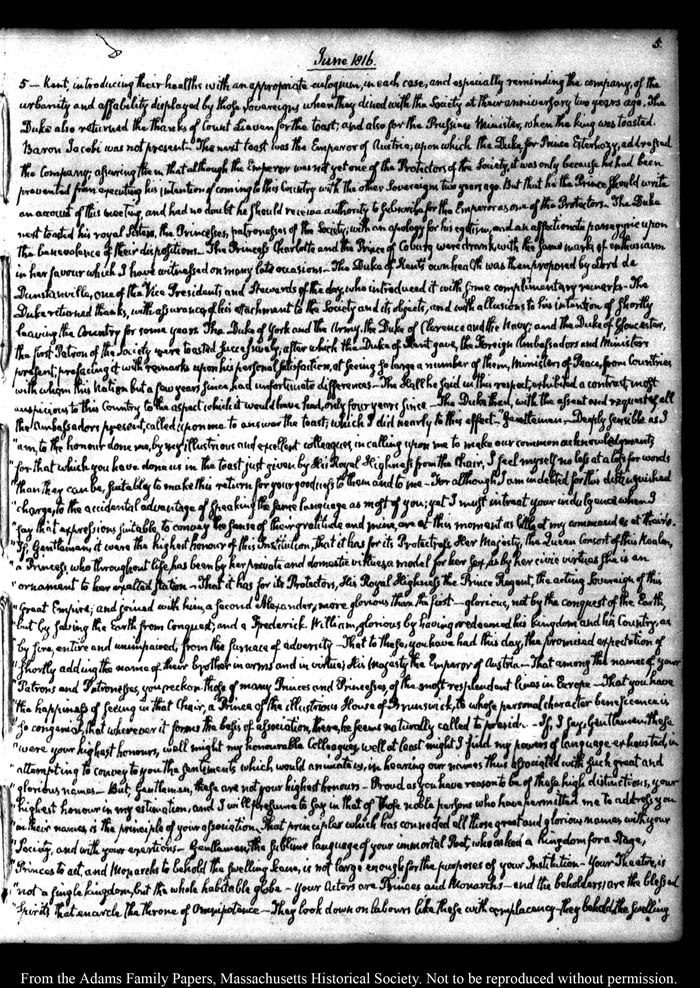 5.
June 1816.
5 — Kent, introducing their healths with an appropriate eulogium, in each case, and especially reminding the company, of the
urbanity and affability displayed by those Sovereigns when they dined with the Society at their anniversary two years ago. The
Duke also returned the thanks of Count Lieven for the toast, and also for the Prussian Minister, when the king was toasted.
Baron Jacobi was not present. The next toast was the Emperor of Austria; upon which the Duke for Prince Esterhazy, addressed
the Company; assuring them that although the Emperor was not yet one of the Protectors of the Society, it was only because he had been
prevented from executing his intention of coming to this Country with the other Sovereigns two years ago. But that he the Prince should write
an account of this meeting, and had no doubt he should receive authority to subscribe for the Emperor as one of the Protectors. The Duke
next toasted his royal Sisters, the Princesses, patronesses of the Society, with an apology for his egotism, and an affectionate panegyric upon
the benevolence of their dispositions. The Princess Charlotte and the Prince of Coburg were drank, with the same marks of enthusiasm
in her favour which I have witnessed on many late occasions. The Duke of Kent's own health was then proposed by Lord de
Dunstanville, one of the Vice Presidents and Stewards of the day, who introduced it with some complimentary remarks. The
Duke returned thanks, with assurances of his attachment to the Society and its objects, and with allusions to his intention of shortly
leaving the Country for some years. The Duke of York and the Army, the Duke of Clarence and the Navy; and the Duke of Gloucester,
the first Patron of the Society were toasted successively, after which the Duke of Kent gave, the Foreign Ambassadors and Ministers
present, prefacing it with remarks upon his personal satisfaction, at seeing so large a number of them, Ministers of Peace, from Countries
with whom this Nation but a few years since, had unfortunate differences — The Hall he said in this respect, exhibited a contrast, most
auspicious to this Country to the aspect which it would have had, only four years since — The Duke then, with the assent and request of all
the Ambassadors present, called upon me to answer the toast; which I did nearly to this effect — "Gentlemen — Deeply sensible as I
"am, to the honour done me, by my illustrious and excellent colleagues, in calling upon me to make our common acknowledgments
"for that which you have done us in the toast just given by His Royal Highness from the Chair, I feel myself no less at a loss for words
"than they can be, suitably to make this return for your goodness to them and to me — For although I am indebted for this distinguished
"charge, to the accidental advantage of speaking the same language as most of you; yet I must intreat your indulgence when I
"say that expressions suitable to convey the sense of their gratitude and mine, are at this moment as little at my command as at theirs.
"If, Gentlemen, it were the highest honour of this Institution, that it has for its Protectress Her Majesty, the Queen Consort of this Realm,
"a Princess, who throughout life has been by her private and domestic virtues a model for her sex, as by her civic virtues she is an
"ornament to her exalted station — That it has for its Protectors, His Royal Highness the Prince Regent, the acting Sovereign of this
"Great Empire; and joined with him, a second Alexander, more glorious than the first — glorious, not by the conquest of the Earth,
"but by saving the Earth from Conquest; and a Frederick William, glorious by having redeemed his kingdom and his Country, as
"by fire, entire and unimpaired, from the furnace of adversity — That to these, you have had this day, the promised expectation of
"shortly adding the name of their brother in arms and in virtue; His Majesty the Emperor of Austria — That among the names of your
"Patrons and Patronesses, you reckon those of many Princes and Princesses, of the most resplendent lines in Europe — That you have
"the happiness of seeing in that Chair, a Prince of the illustrious House of Brunswick, to whose personal character beneficence is
"so congenial, that wherever it forms the basis of association, there, he seems naturally called to preside — If, I say, Gentlemen, these
"were your highest honours, well might my honourable Colleagues, well at least might I find my powers of language exhausted, in
"attempting to convey to you the sentiments which would animate us, in hearing our names thus associated with such great and
"glorious names — But, Gentlemen, these are not your highest honours — Proud as you have reason to be of these high distinctions, your
"highest honour in my estimation, and I will presume to say in that of those noble persons who have permitted me to address you
"in their names is the principle of your association, that principle which has connected all those great and glorious names with your
"Society, and with your exertions — Gentlemen, the sublime language of your immortal Poet, who asked a kingdom for a Stage,
"Princes to act, and Monarchs to behold the swelling Scene, is not large enough for the purposes of your Institution — Your Theatre, is
"not a single kingdom, but the whole habitable globe — your Actors are Princes and Monarchs — and the beholders, are the blessed
"Spirits that encircle the throne of Omnipotence — They look down on labours like these with complacency — they behold the swelling
From the Adams Family Papers, Massachusetts Historical Society. Not to be reproduced without permission.